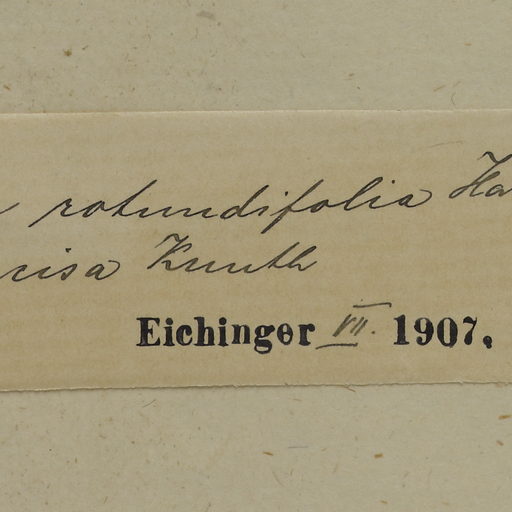 rotundifolia Ha
cisa Kunth
Eichinger VII. 1907.